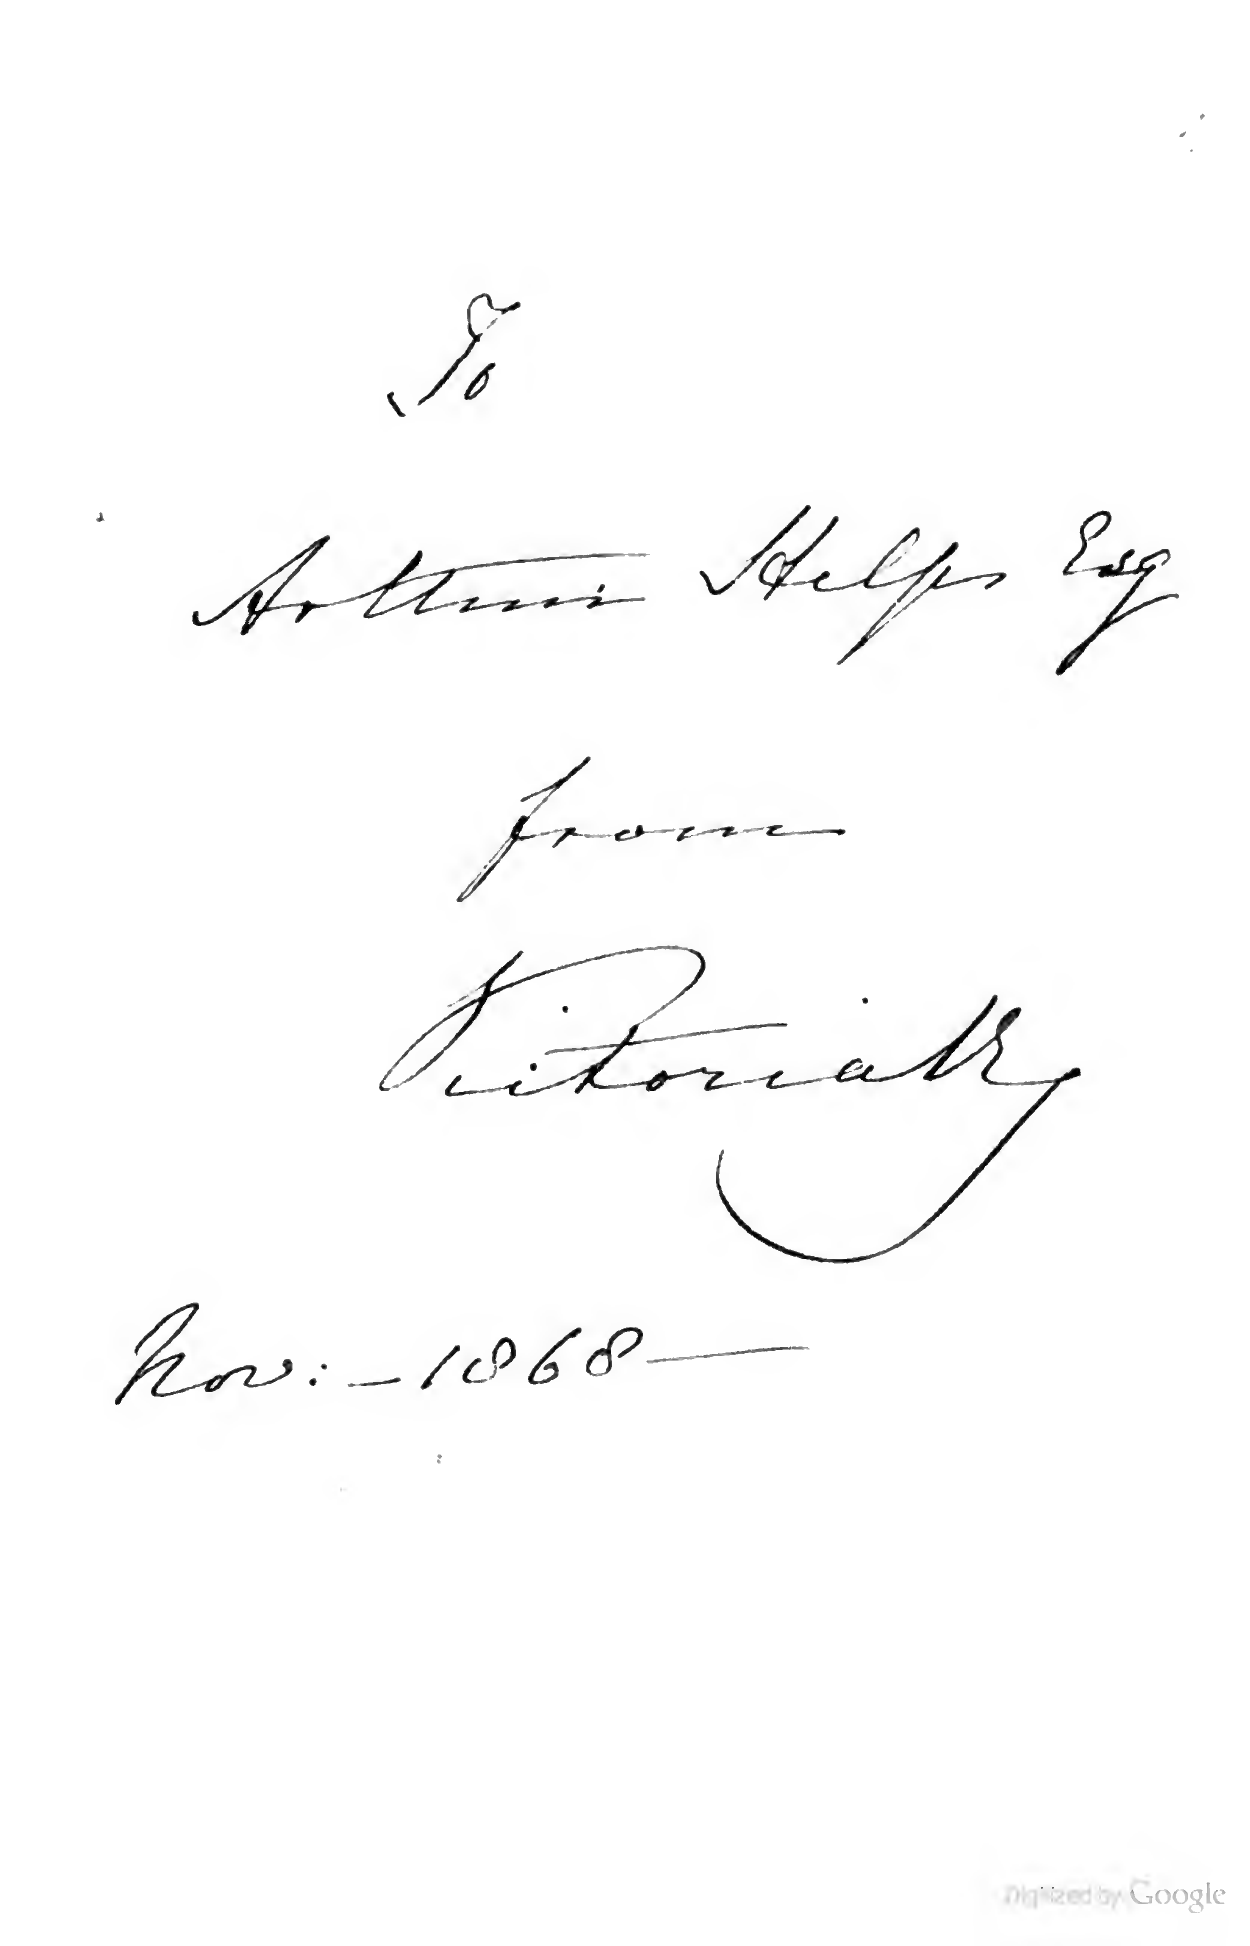 To
Arthur Helps Esq
from
Victoria R
Nov: – 1868 —
Digitized by Google